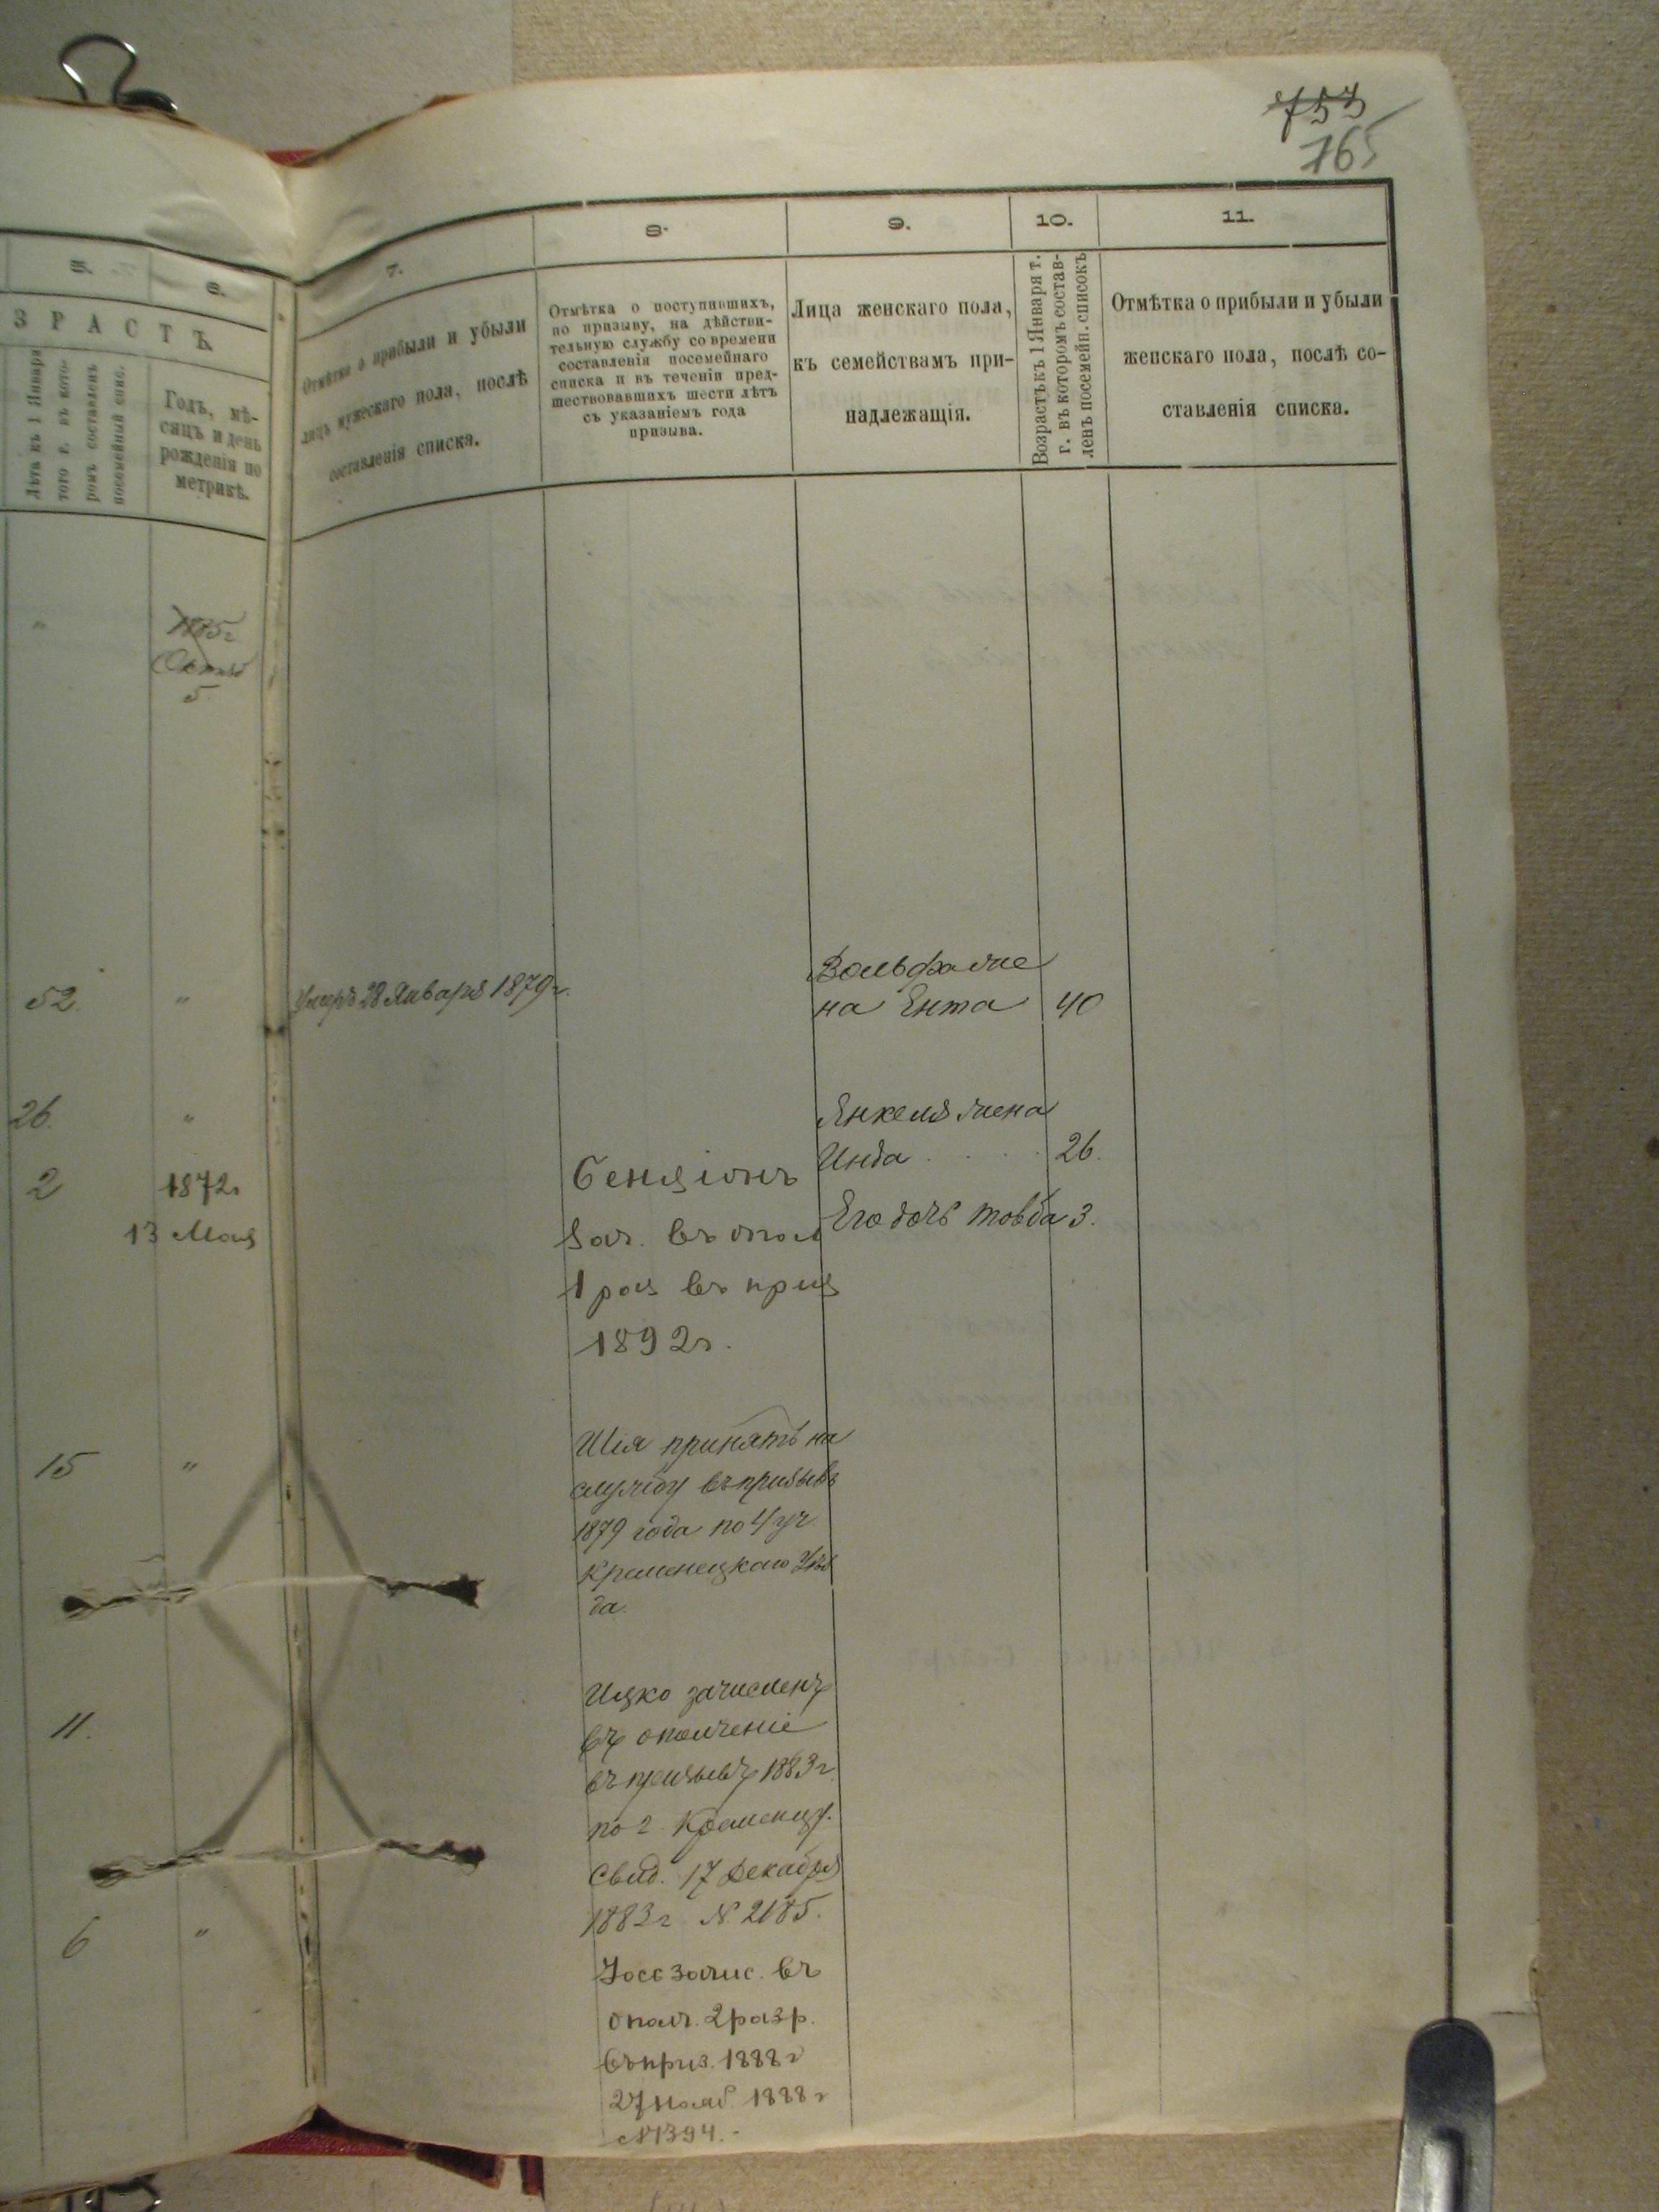 753
765
5.
6.
7.
8.
9.
10.
11.
ЗРАСТЪ.
Лѣта къ 1 Января
того г. въ кото-
ромъ составленъ
посемейный спис.
Годъ, мѣ-
сяцъ и день
рожденія по
метрикѣ.
Отмѣтка о прибыли и убыли
лицъ мужескаго пола, послѣ
составленія списка.
Отмѣтка о поступившихъ,
по призыву, на дѣйстви-
тельную службу со времени
составленія посемейнаго
списка и въ теченіи пред-
шествовавшихъ шести лѣтъ
съ указаніемъ года
призыва.
Лица женскаго пола,
къ семействамъ при-
надлежащія.
Возрастъ къ 1 Января т.
г. въ которомъ состав-
ленъ посемейн. списокъ
Отмѣтка о прибыли и убыли
женскаго пола, послѣ со-
ставленія списка.
"
1875г
Октяб
5
52 " Умеръ 28 Января 1879г.
Вольфа же
на Ента 40
26. "
Янкеля жена
Инда . . . . 26.
Его дочь Товба 3.
2 1872г
13 Мая
Бенціонъ
Зач. въ опол
1 раз въ приз
1892г.
15 "
Шія принятъ на
службу въ призывъ
1879 года по 4 уч.
Кременецкаго Уѣз
да.
11.
Ицко зачисленъ
въ ополченіе
въ призывъ 1883г
по г. Кременцу.
Свид. 17 Декабря
1883г N. 2185.
6 "
Иосъ зачис. въ
ополч. 2 разр.
въ приз. 1888г
27 нояб. 1888г
№1394.-